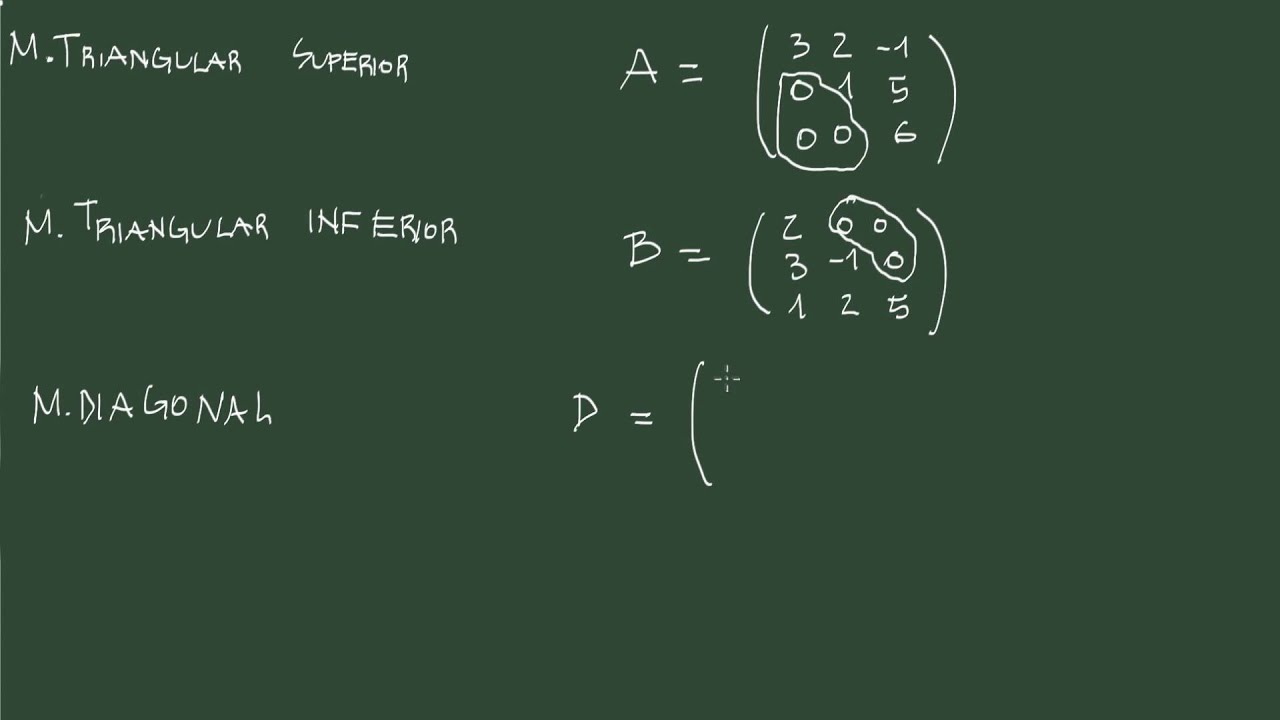 M. TRIANGULAR SUPERIOR
A = ( 3 2 -1
0 1 5
0 0 6 )
M. TRIANGULAR INFERIOR
B = ( 2 0 0
3 -1 0
1 2 5 )
M. DIAGONAL
D = (